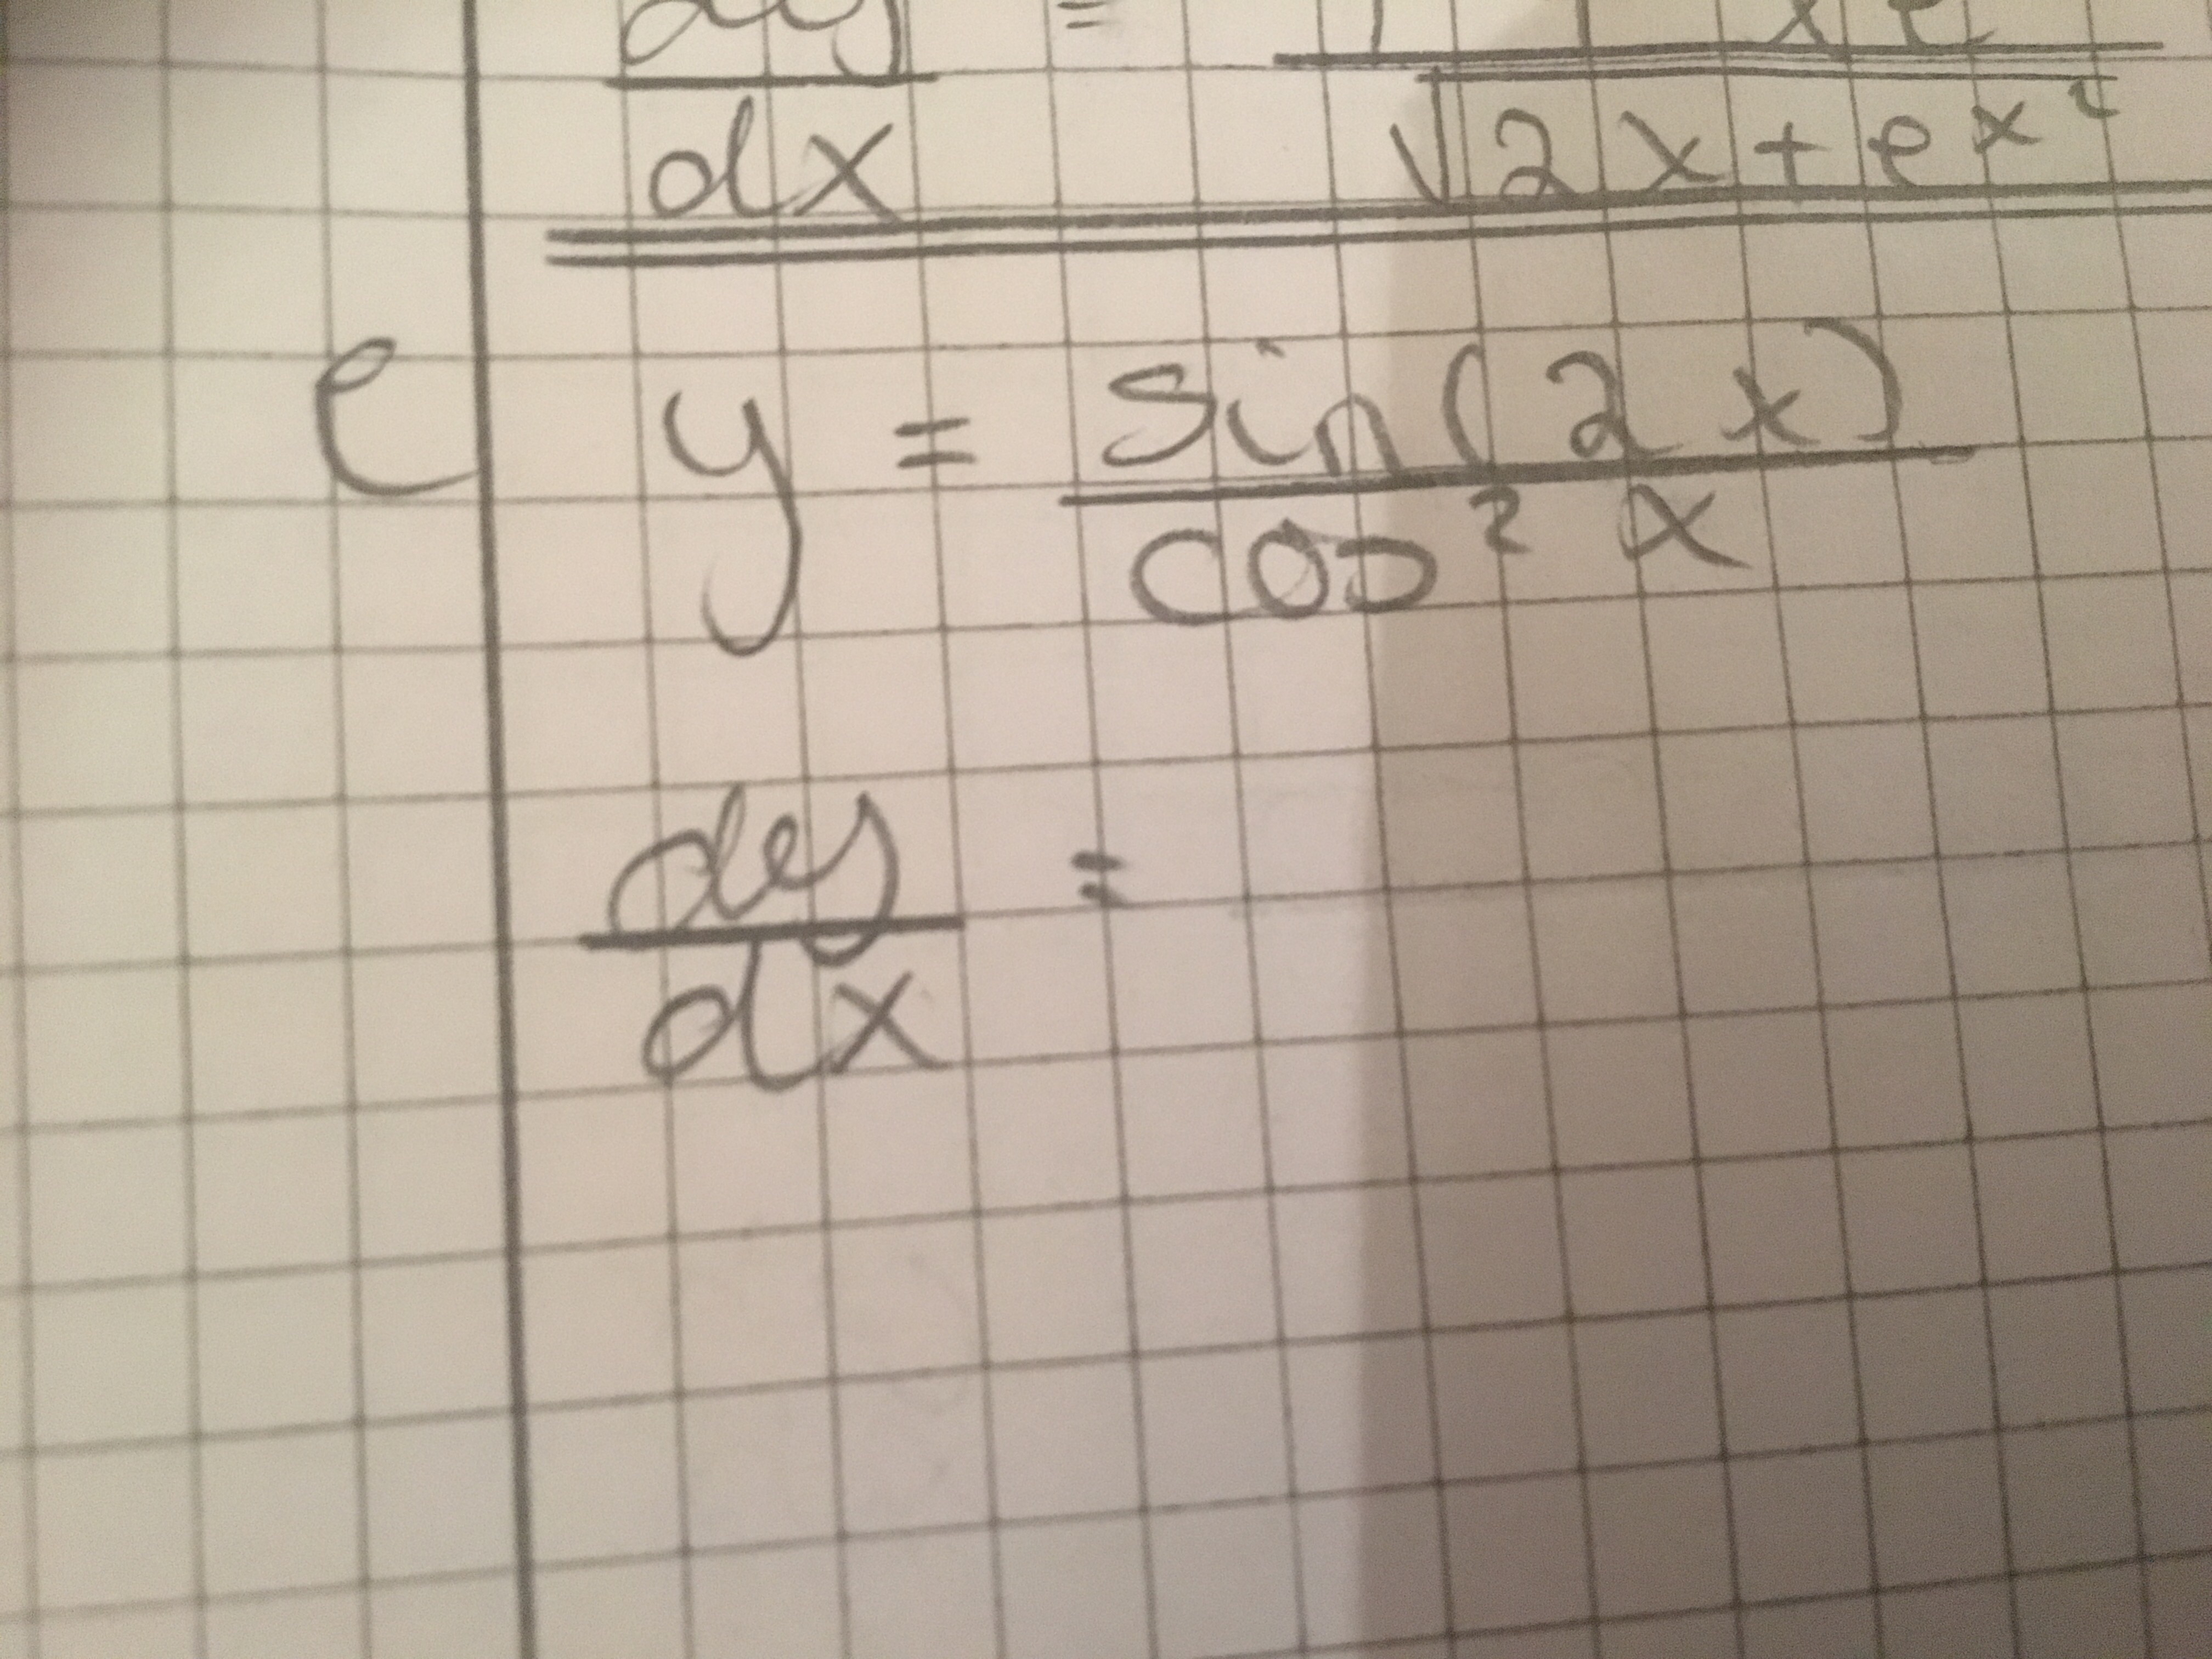 dy =
dx √2x+eˣ²
e y = sin(2x)
cos² x
dy =
dx